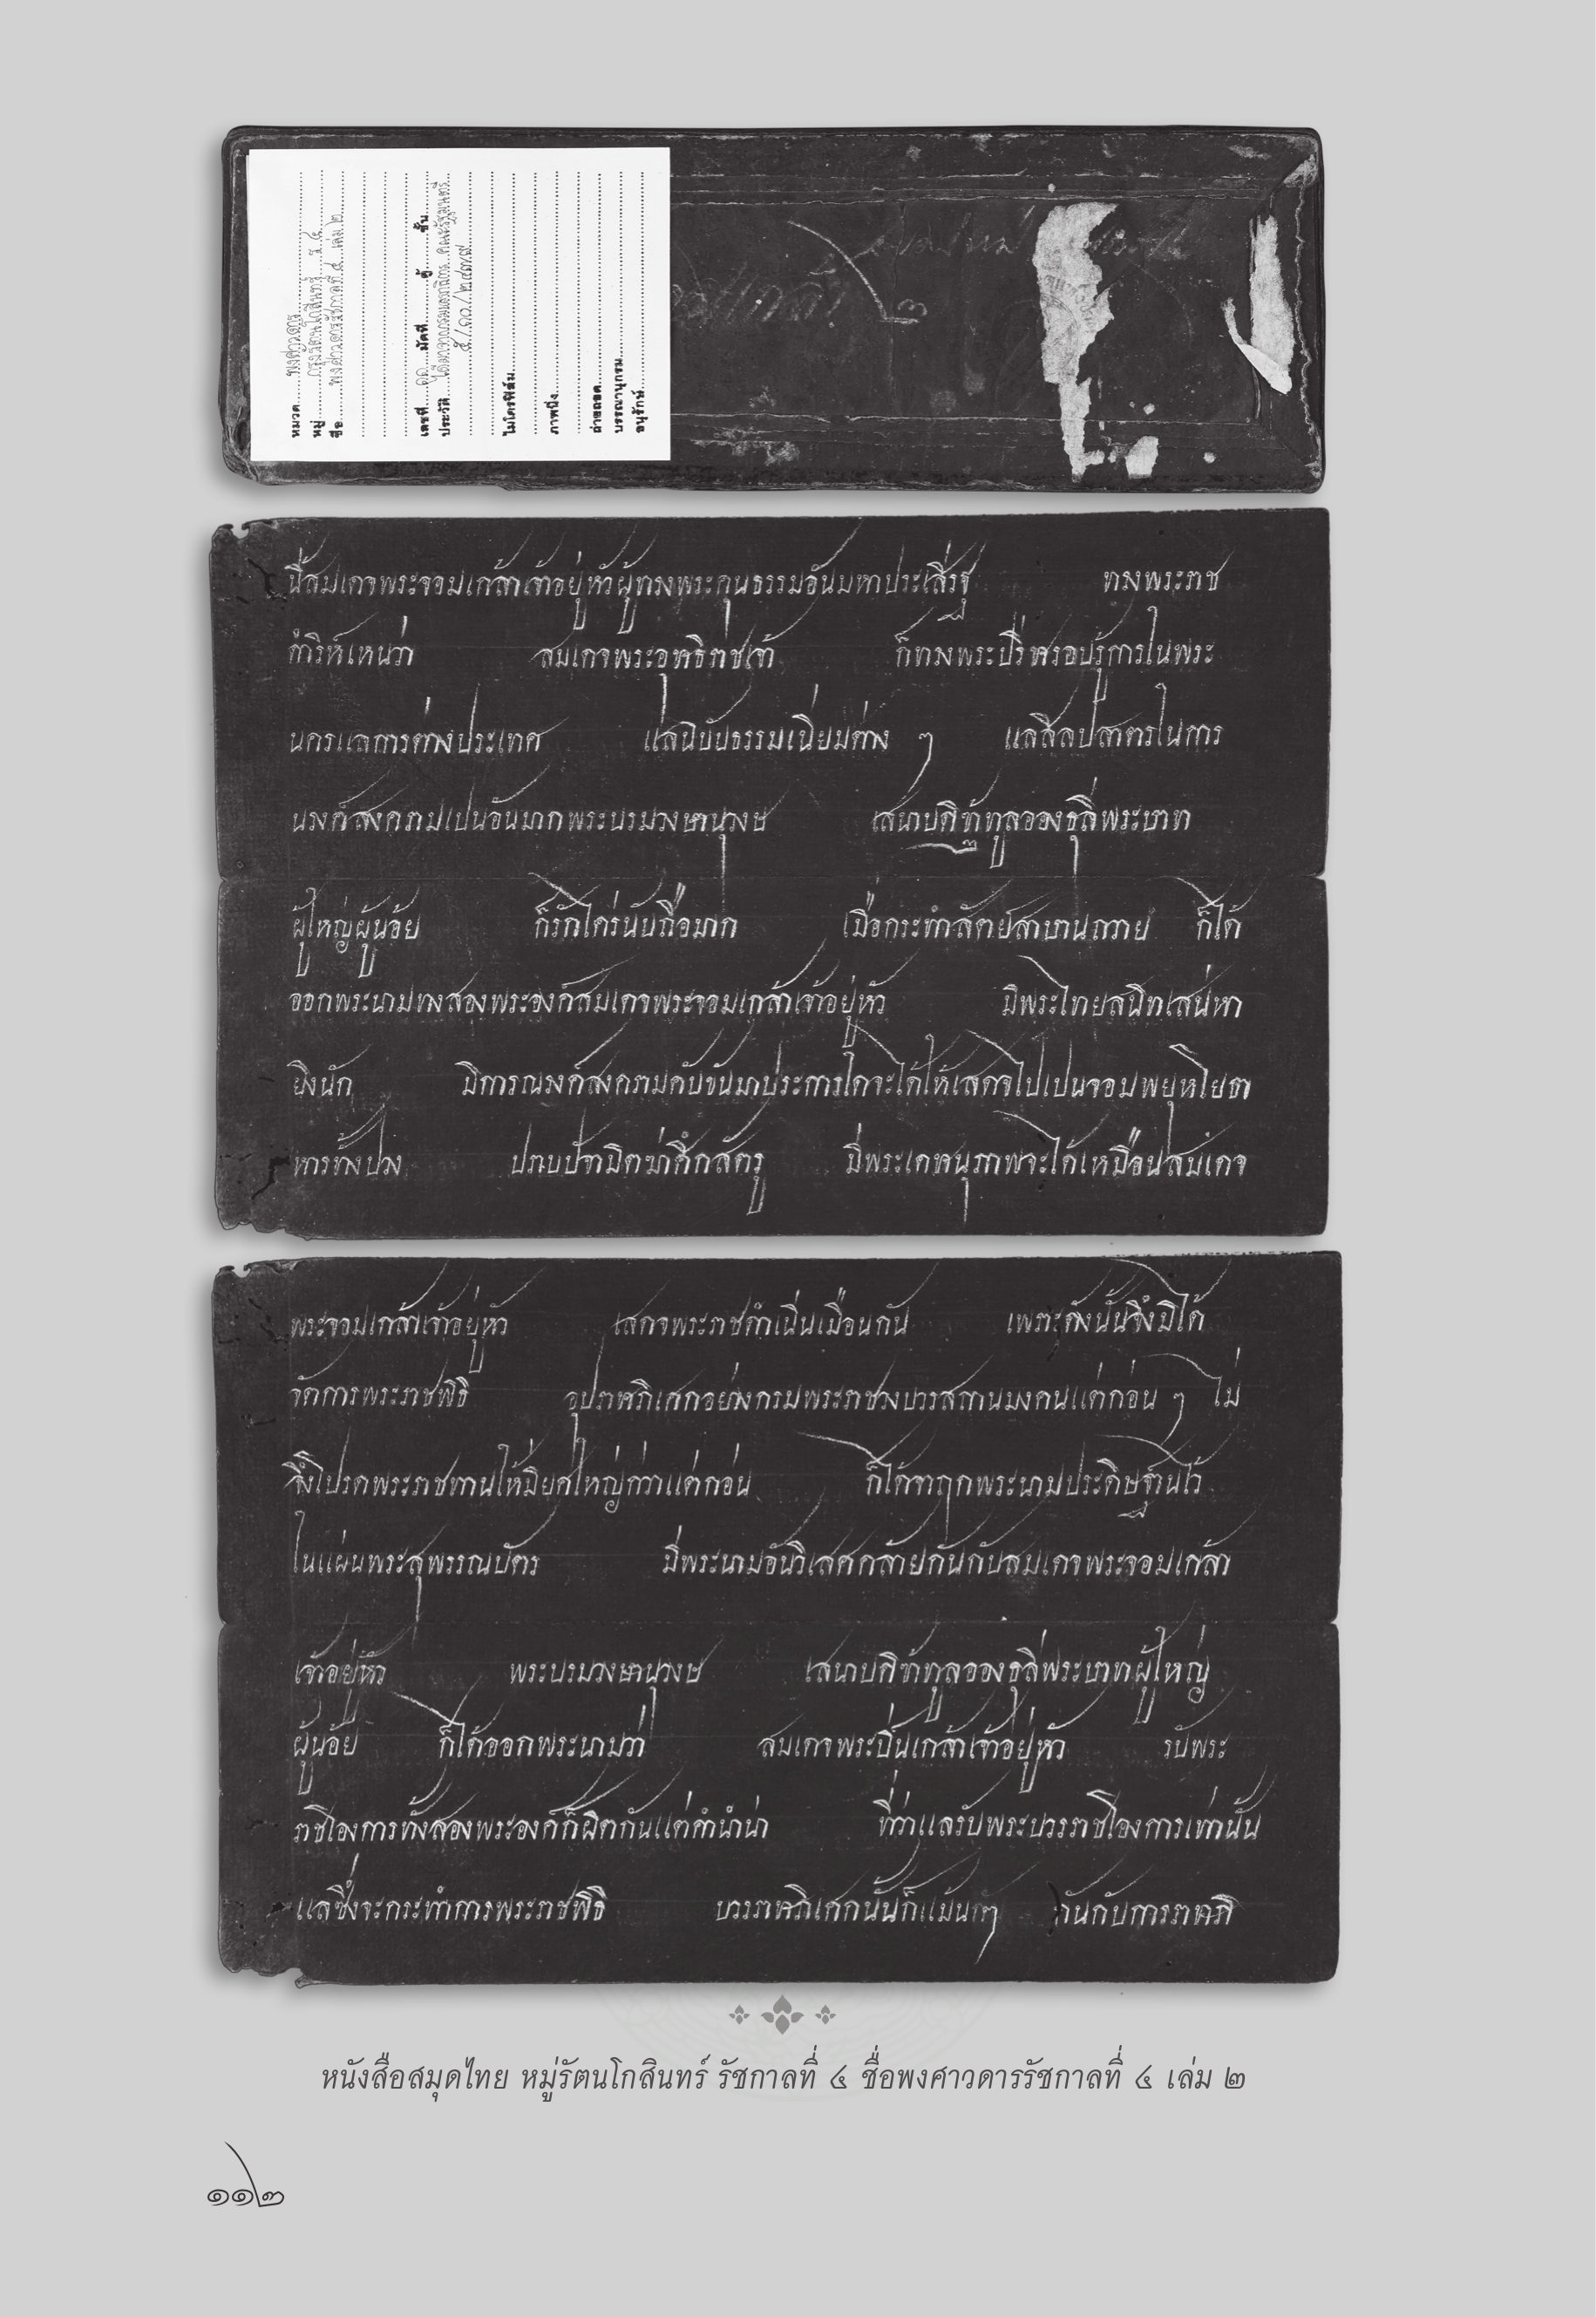 หมวด พงศาวดาร
หมู่ กรุงรัตนโกสินทร์ ร.๔
ชื่อ พงศาวดารรัชกาลที่ ๔ เล่ม ๒
เลขที่ มัดที่ ตู้ ชั้น
ประวัติ ได้มาจากกรมเลขาธิการ คณะรัฐมนตรี
๕/๑๐/๒๔๗๙
ไมโครฟิล์ม
ภาพนิ่ง
ถ่ายถอด
บรรณานุกรม
อนุรักษ์
นี้สมเดจพระจอมเกล้าเจ้าอยู่หัวผู้ทรงพระคุนธรรมอันมหาประเสิ่รฐ ทรงพระราช
ดำริห์เหนว่า สมเดจพระอนุชาธิราชเจ้า ก็ทรงพระปรีชารอบรู้การในพระ
นครแลการต่างประเทศ แลขนิบธรรมเนิ่ยมต่าง ๆ แลสิลปสาตรในการ
นรงค์สงครามเปนอันมากพระบรมวงษานุวงษ เสนาบดิข้าทูลอองธุลิพระบาท
ผู้ใหญ่ผู้น้อย ก็รักใคร่นับถือมาก เมื่อกระทำสัตย์สาบานถวาย ก็ได้
ออกพระนามทงสองพระองค์สมเดจพระจอมเกล้าเจ้าอยู่หัว มิพระไทยสนิทเสน่หา
ยิงนัก มิการณรงค์สงครามคับขันมาประการใดจะได้ให้เสดจไปเปนจอมพยุหโยธา
หารทังปวง ปราบปัจามิตฆ่าศึกสัตรู มิพระเดชานุภาพจะได้เหมือนสมเดจ
พระจอมเกล้าเจ้าอยู่หัว เสดจพระราชดำเนิ่นเมือนกัน เพราะดังนั้นจึงมิได้
จัดการพระราชพิธิ อุปราชาภิเศกอย่างกรมพระราชวงบวรสถานมงคนแต่ก่อน ๆ ไม่
จึ่งโปรดพระราชทานให้มิยศใหญ่กว่าแต่ก่อน ก็ได้จาฤกพระนามประดิษฐานไว้
ในแผ่นพระสุพรรณบัตร มิพระนามอันวิเสศคล้ายกันกับสมเดจพระจอมเกล้า
เจ้าอยู่หัว พระบรมวงษานุวงษ เสนาบดิข้าทูลอองธุลิพระบาทผู้ใหญ่
ผู้น้อย ก็ได้ออกพระนามว่า สมเดจพระปิ่นเกล้าเจ้าอยู่หัว รับพระ
ราชโองการทังสองพระองค์ก็ผิดกันแต่คำนำน่า ที่ว่าแลรับพระบวรราชโองการเท่านั้น
แลซึ่งจะกระทำการพระราชพิธิ บวรราชาภิเศกนั้นก็แม้น กันกับการราชาภิ
หนังสือสมุดไทย หมู่รัตนโกสินทร์ รัชกาลที่ ๔ ชื่อพงศาวดารรัชกาลที่ ๔ เล่ม ๒
๑๑๒